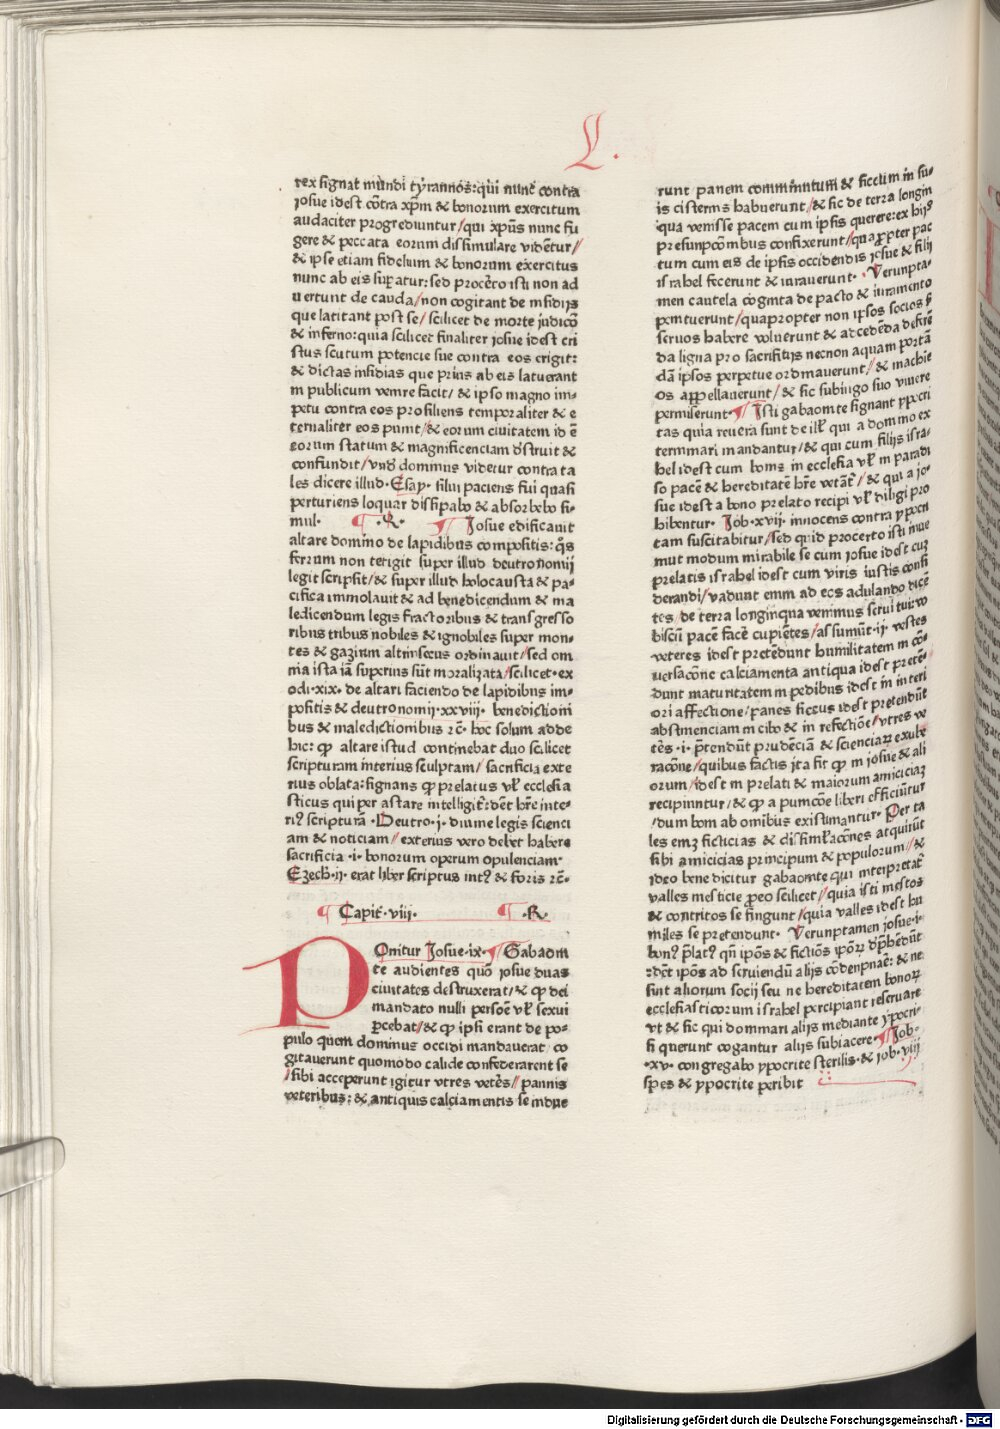 L.
rex signat mūndi tyrannos: qui nunc contra
josue idest cōtra xp̄m & bonorum exercitum
audaciter progrediuntur/ qui xp̄us nunc fu
gere & peccata eorum dissimulare vidētur//
& ipse etiam fidelium & bonorum exercitus
nunc ab eis sup̄atur: sed procēro isti non ad
uertunt de cauda/ non cogitant de insidijs
que latitant post se/ scilicet de morte judicō
& inferno: quia scilicet finaliter josue idest cri
stus scutum potencie sue contra eos erigit:
& dictas insidias que prius ab eis latuerant
in publicum venire facit/ & ipso magno im-
petu contra eos prosiliens temporaliter & e
ternaliter eos punit/ & eorum ciuitatem id ē
eorum statum & magnificenciam d'struit &
confundit/ vnd' dominus videtur contra ta
les dicere illud. Esay. filui paciens fui quasi
perturiens loquar dissipabo & absorbebo si-
mul. ¶ .R. ¶ Josue edificauit
altare domino de lapidibus compositis: q̄s
ferrum non tetigit super illud deutronomij
legit scripsit/ & super illud holocausta & pa-
cifica immolauit & ad benedicendum & ma
ledicendum legis fractoribus & transgresso
ribus tribus nobiles & ignobiles super mon-
tes & gazirim altrinsecus ordinauit/ sed om
nia ista iā superius sūt moralizata/ scilicet. ex
odi.xix. de altari faciendo de lapidibus im-
positis & deutronomij.xxviij. benedictioni
bus & maledictionibus rc̄. hoc solum adde
hic: ꝙ altare istud continebat duo scilicet
scripturam interius sculptam/ sacrificia exte
rius oblata: signans ꝙ prelatus vƚ ecclesia
sticus qui per astare intelligit': d'et hr̄e inte-
riꝰ scripturā. Deutro.j. diuine legis scienci
am & noticiam// exterius vero debet habere
sacrificia .i. bonorum operum opulenciam.
Ezech.ij. erat liber scriptus intꝰ & foris rc̄.
¶ Capit'. viij. ¶ .R.
POnitur Josue.ix. ¶ Gabaoni
te audientes quō josue duas
ciuitates destruxerat/ & ꝙ dei
mandato nulli persoē vƚ sexui
ꝑcebat/ & ꝙ ipsi erant de po-
pulo quem dominus occidi mandauerat/ co
gitauerunt quomodo calide confederarent se
/ sibi acceperunt igitur vtres vetēs// pannis
veteribus: & antiquis calciamentis se indue
runt panem comminutum & siccum in su-
is cisternis habuerunt/ & sic de terra longin
qua venisse pacem cum ipsis querere: ex hijs
presumpcōnibus confixerunt/ quaꝓpter pac
tum cum eis de ipsis occidendis josue & filij
israhel fecerunt & iurauerunt. Verunpta-
men cautela cognita de pacto & iuramento
penituerunt/ quapropter non ipsos socios s̄
seruos habere voluerunt & ad cedēda deferē
da ligna pro sacrificijs necnon aquam portā
dā ipsos perpetue ordinauerunt// & machie
os appellauerunt/ & sic subiugo suo viuere
permiserunt. ¶ Isti gabaonite signant ypocri
tas quia reuera sunt de illꝭ qui a domino ex
terminari mandantur/ & qui cum filijs isra-
hel idest cum bonis in ecclesia vƚ in paradi
so pacē & hereditatē hr̄e vetāt'/ & qui a jo-
sue idest a bono prelato recipi vƚ diligi pro
hibentur. Job.xvij. innocens contra ypocri
tam suscitabitur/ sed quid procerto isti inue
niut modum mirabile se cum josue idest cuꝫ
prelatis israhel idest cum viris iustis confi
derandi/ vadunt enim ad eos adulando dicē
tes/ de terra longinqua venimus serui tui: vo
biscū pacē facē cupiētes/ assumūt.ij. vestes
veteres idest pretēdunt humilitatem in cō-
uersacōne calciamenta antiqua idest pretē-
dunt maturitatem in pedibus idest in interi
ori affectione/ panes siccus idest pretendūt
abstinenciam in cibo & in refectiōe/ vtres ve
tēs .i. p̄tendūt prudēciā & scienciaꝝ exube
racōne/ quibus factis jta fit ꝙ in josue & ali
orum/ idest in prelati & maiorum amiciciaꝫ
recipiuntur/ & ꝙ a punicōe liberi efficiūtur
/ dum boni ab omibus existimantur. Per ta
les emꝫ ficticias & dissimƚacōnes acquirūt
sibi amicicias principum & populorum// &
ideo benedicitur gabaonite qui interpretat'
valles mesticie ꝓeo scilicet// quia isti mestos
& contritos se fingunt/ quia valles idest hu
miles se pretendunt. Verunptamen josue .i.
bonꝰ p̄latꝰ qn̄ ipōs & fictiōs ipōꝝ dp̄hēdūt
:d'et ipōs ad seruiendū alijs cōdenpnaē: & ne
sint aliorum socij seu ne hereditatem bonoꝝ
ecclesiasticorum israhel percipiant reseruare
vt & sic qui dominari alijs mediante ypocri-
si querunt cogantur alijs subiacere. ¶ Job.
.xv. congregabo ypocrite sterilis. & job. viij
spes & ypocrite peribit